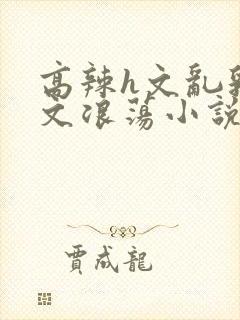 高辣h文亂
文浪蕩小說
賈成龍